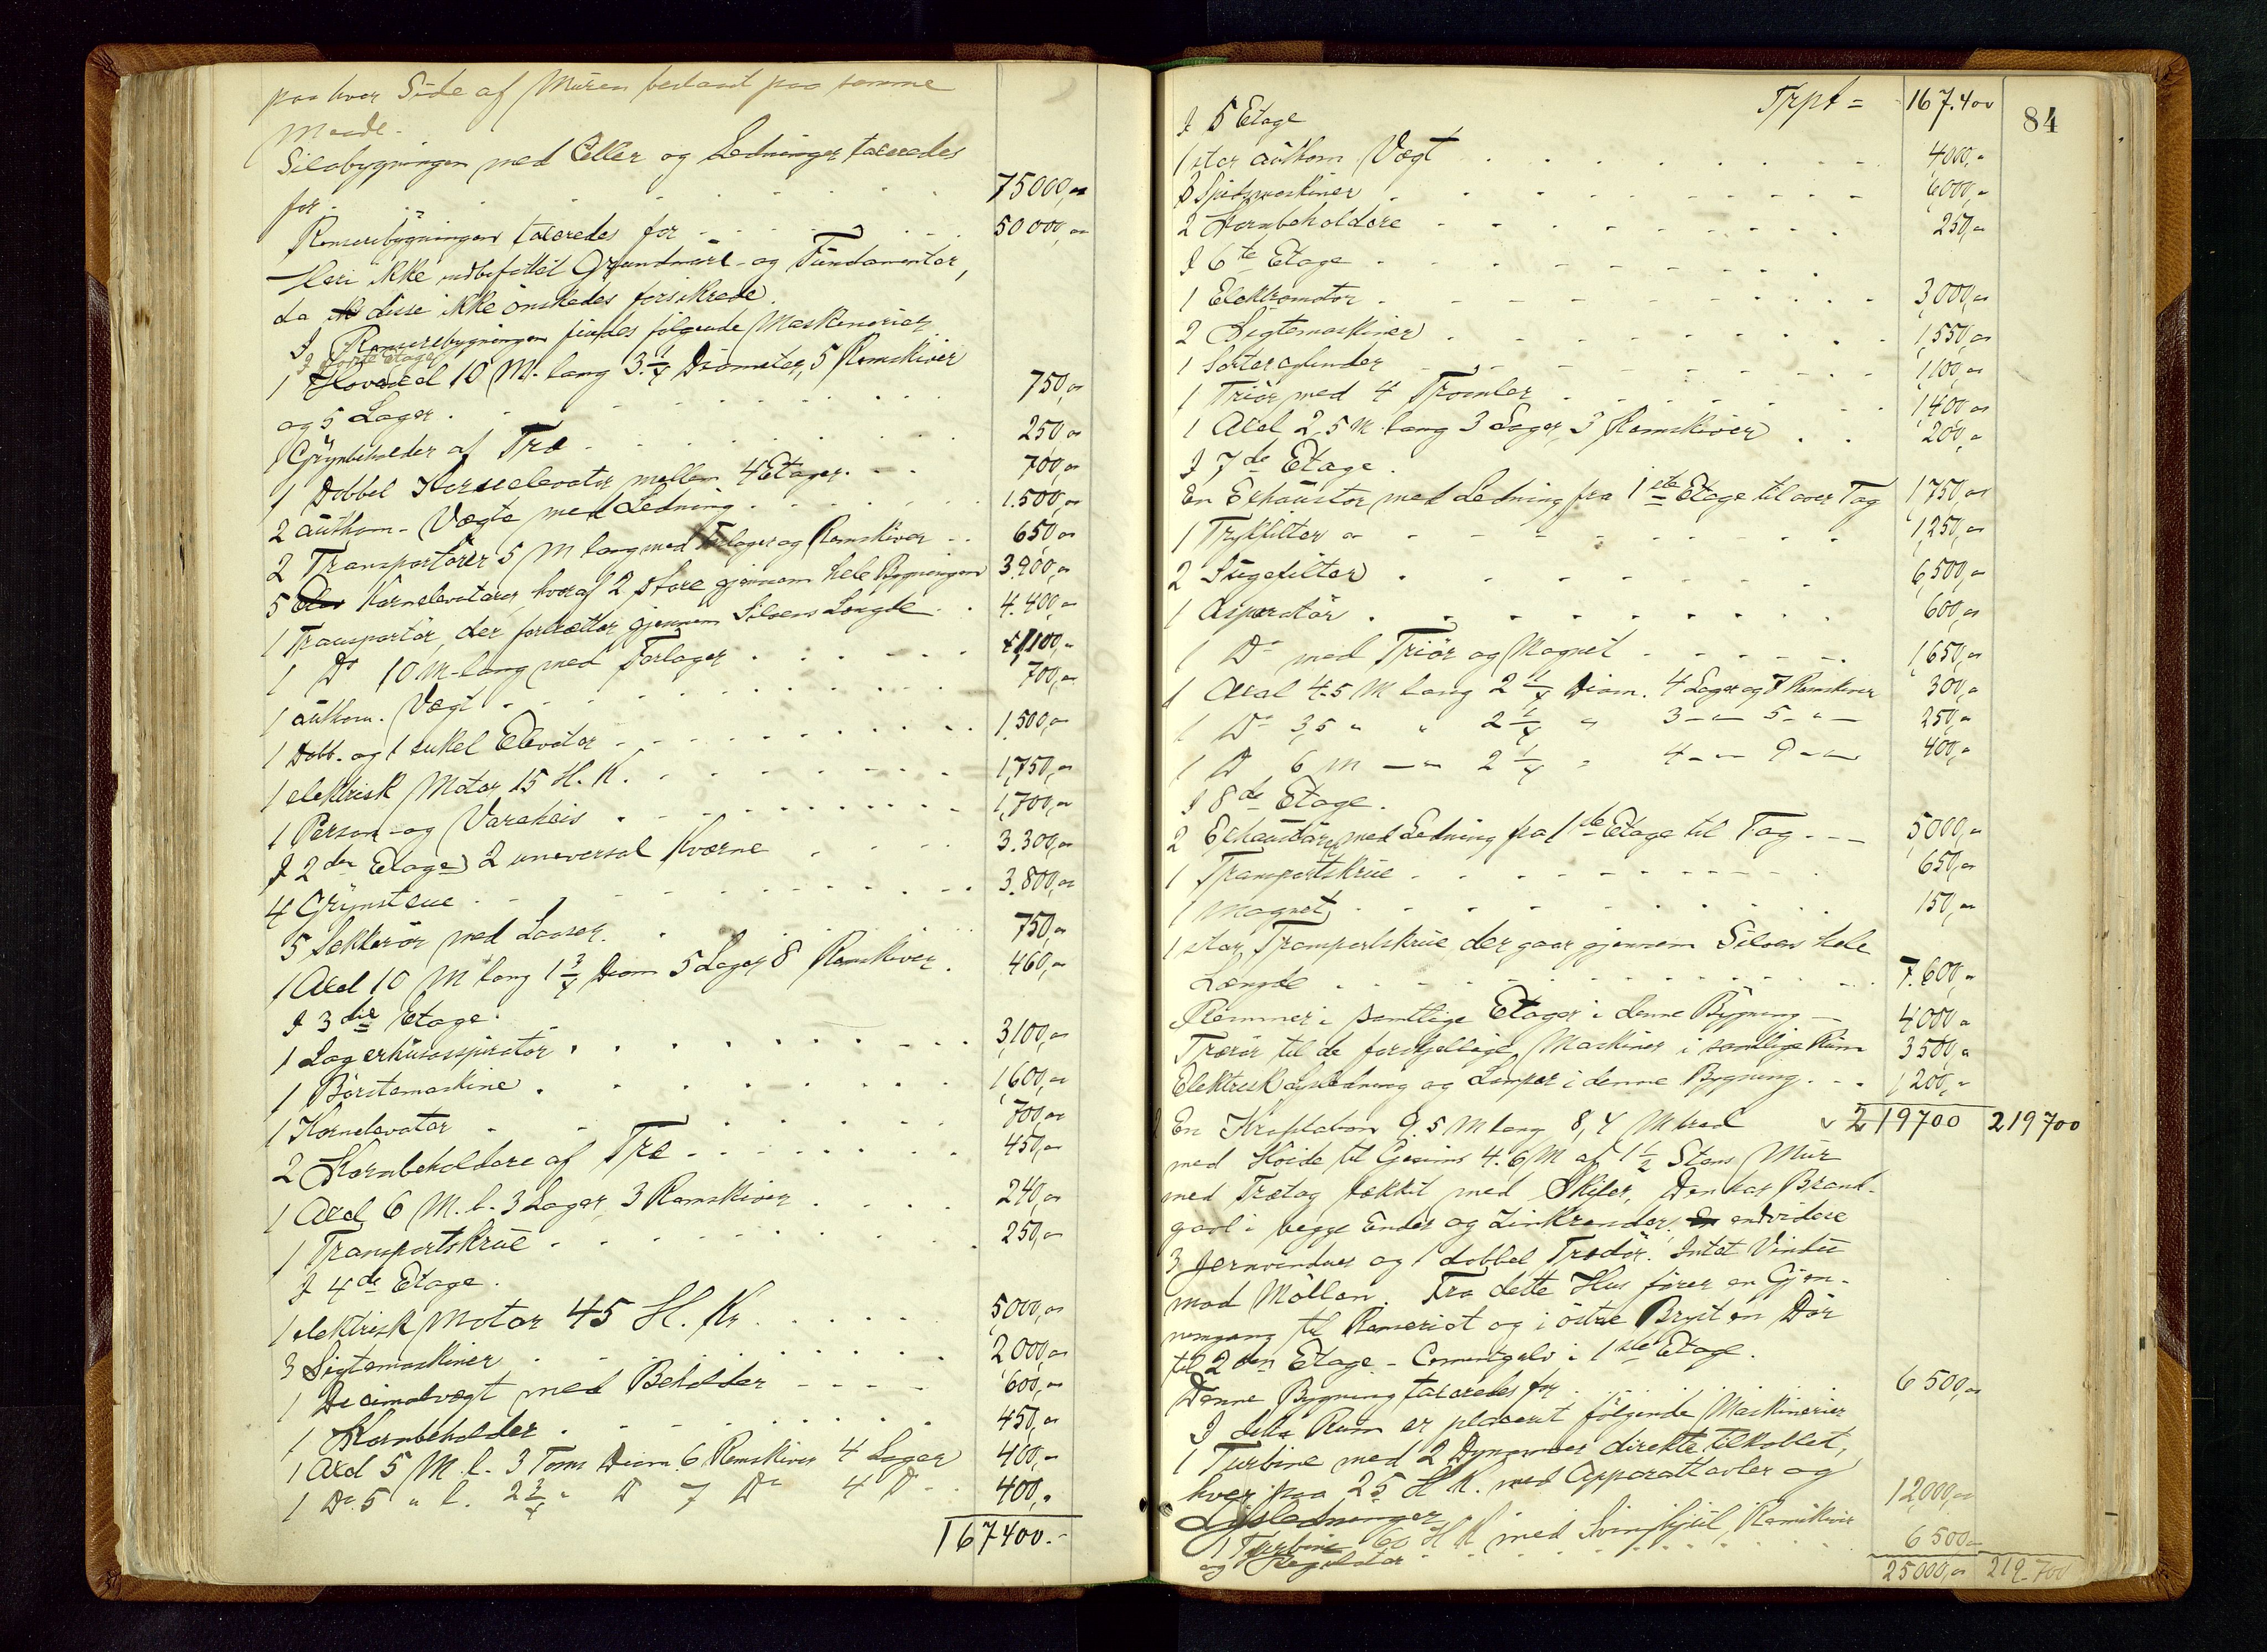 paa hver Side af Muren bestaar paa samme
Maade.
Silobygningen med Celler og Ledninger taxeredes
for . . . . . . . 75000,00
Renseribygningen taxeredes for . . . . . 50000,00
Heri ikke indbefattet Grundmure og Fundamenter,
da disse ikke önskedes forsikrede.
I Renseribygningen findes fölgende Maskinerier
I förste Etage
1 Hovedaxel 10 M. lang 3 1/4 Diameter, 5 Remskiver
og 5 Lager . . . . . 750,00
1 Grynbeholder af Træ . . . . . 250,00
1 Dobbel Kornelevator mellem 4 Etager . . . 700,00
2 authom. Vægte med Ledning . . . . . 1.500,00
2 Transportörer 5 M lang med Forlager og Remskiver . . 650,00
5 Kornelevatorer, hvoraf 2 store gjennem hele Bygningen 3.900,00
1 Transportör, der fortsætter gjennem Siloens Længde . . 4.400,00
1 Do 10 M. lang med Forlager . . . . 1,100,-
1 authom. Vægt . . . . . 700,00
1 Dobb. og 1 enkel Elevator . . . . . 1.500,00
1 elektrisk Motor 15 H. K. . . . . . 1,750,00
1 Person- og Vareheis . . . . . 1,700,00
I 2den Etage 2 universal Kværne . . . . 3.300,00
4 Grynstene . . . . . 3.800,00
5 Sækkerör med Laaser . . . . . 750,00
1 Axel 10 M lang 1 3/4 Diam 5 Lager 8 Remskiver . 460,00
I 3die Etage.
1 Lagerhusaspiratör . . . . . 3,100,00
1 Börstemaskine . . . . . 1,600,00
1 Kornelevator . . . . . 700,00
2 Kornbeholdere af Træ . . . . . 450,00
1 Axel 6 M. l. 3 Lager, 3 Remskiver . . . . 240,00
1 Transportskrue . . . . . 250,00
I 4de Etage.
1 elektrisk Motor 45 H. Kr. . . . . 5000,00
3 Sigtemaskiner . . . . . 2000,00
1 Decimalvægt med Beholder . . . . 600,00
1 Kornbeholder . . . . . 450,00
1 Axel 5 M. l. 3 Toms Diam. 6 Remskiver 4 Lager 400,-
1 Do. 5 " l. 2 3/4 " D 7 Do 4 D . . 400,-
167400.-
Trpt = 167.400
84
I 5 Etage
1 stor authom Vægt . . . . . 4000,-
3 Spidsmaskiner . . . . . 6000,-
2 Kornbeholdere . . . . . 250,00
I 6te Etage . . . . .
1 Elektromotor . . . . . 3,000,00
2 Sigtemaskiner . . . . . 1,550,00
1 Sortercylinder . . . . . 1,100,00
1 Triör med 4 Tromler . . . . . 1400,00
1 Axel 2,5 M lang 3 Lager, 3 Remskiver . . 200,-
I 7de Etage.
En Exhaustor med Ledning fra 1ste Etage til over Tag 1,750,00
1 Trykfilter . . . . . 1,250,00
2 Sugefilter . . . . . 6,500,00
1 Asperatör . . . . . 600,00
1 Do med Triör og Magnet . . . . . 1,650,00
1 Axel 4.5 M lang 2 1/4 Diam. 4 Lager og 7 Remskiver 300,-
1 Do 3,5 " " 2 1/4 " 3 - " - 5 - " - 250,-
1 D 6 m - " - 2 1/4 " 4 - " - 9 - " - 400,-
I 8de Etage.
2 Exhaustörer med Ledning fra 1ste Etage til Tag . . - 5000,-
1 Transportskrue . . . . . 650,00
1 Magnet . . . . . 150,00
1 stor Transportskrue der gaar gjennem Siloens hele
Længde . . . . . 7.600,-
Remmer i samtlige Etager i denne Bygning - 4000,-
Trærör til de forskjellige Maskiner i samtlige Rum 3500,-
Elektrisk Lysledning og Lamper i denne Bygning . . . 1,200,-
En Kraftstation 9,5 M lang 8,4 M bred 219700 219700
med Höide til Gesims 4.6 M af 1 1/2 Stens Mur
med Trætag tækket med Skifer. Den har Brand-
gavl i begge Ender og Zinkrender, endvidere
3 Jernvinduer og 1 dobbel Trædör. Intet Vindu
mod Möllen. Fra dette Hus förer en Gjen-
nemgang til Renseriet og i östre Bryst en Dör
til 2den Etage - Cementgulv i 1ste Etage.
Denne Bygning taxeredes for . . . . . 6500,00
I dette Rum er placeret fölgende Maskinerier
1 Turbine med 2 Dynamoer direkte tilkoblet,
hver paa 25 H K. med Apparattavler og
Lysledninger 12,000,00
1 Turbine 60 H K med Svinghjul, Remskive
og Regulator . . . . . 6500,-
25000,00 219.700